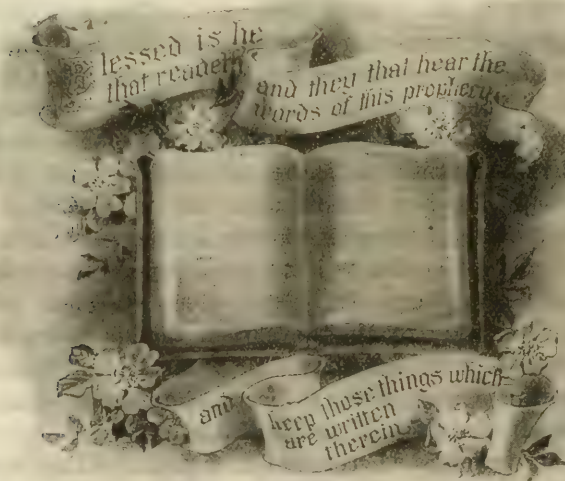 Blessed is he
that readeth,
and they that hear the
words of this prophecy,
and
keep those things which
are written
therein.